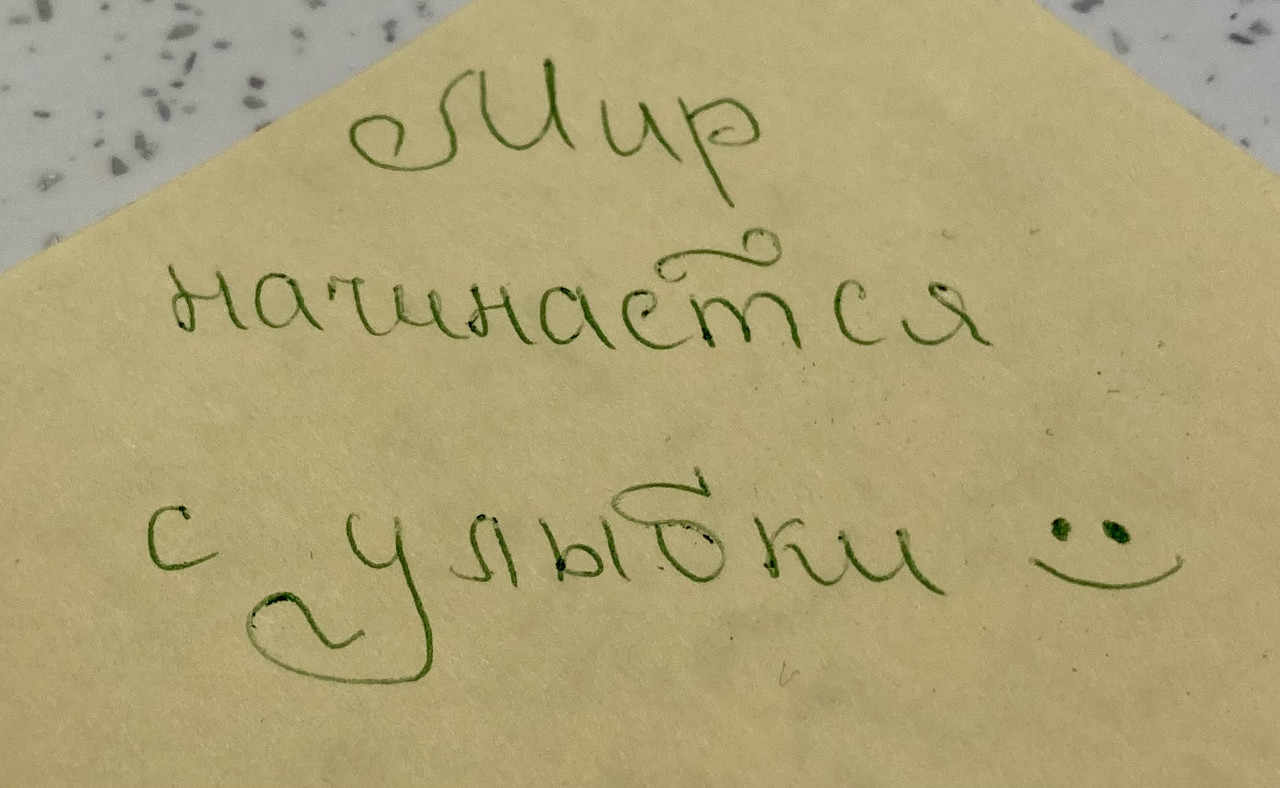 Мир
начинается
с улыбки :)